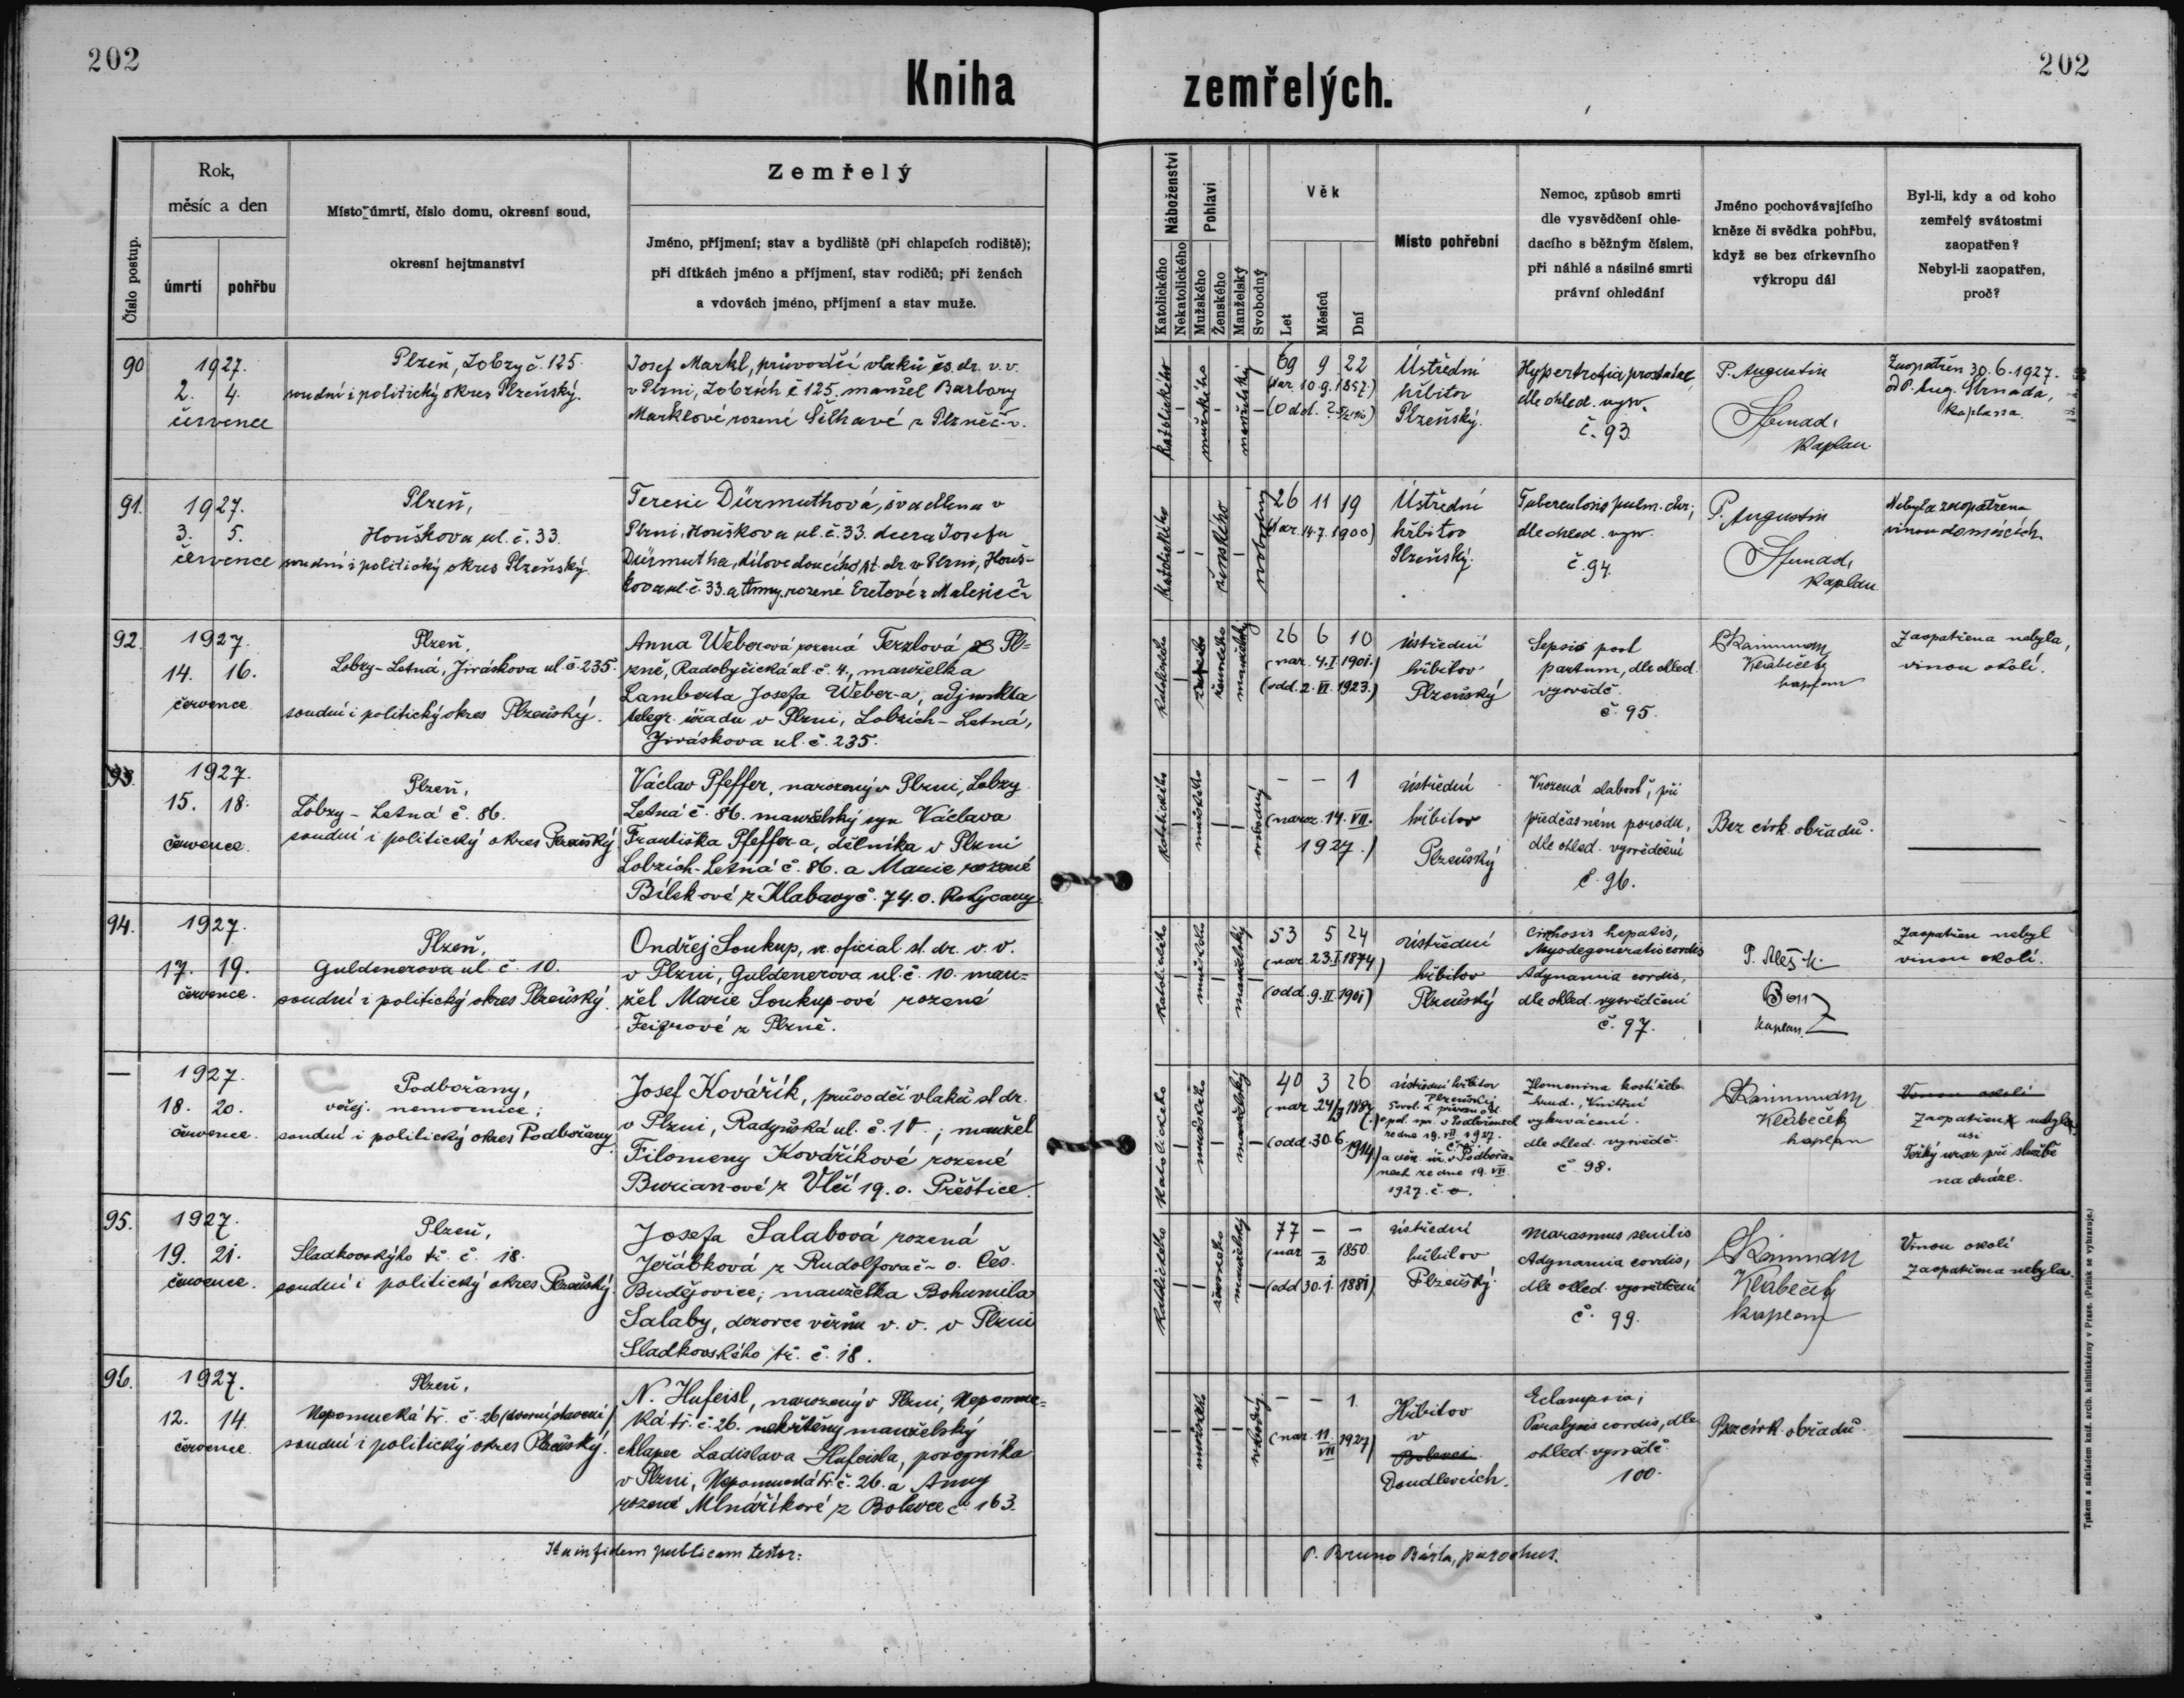 202
202
Kniha zemřelých.
Číslo postup.
Rok,
měsíc a den
úmrtí
pohřbu
Místo úmrtí, číslo domu, okresní soud,
okresní hejtmanství
Zemřelý
Jméno, příjmení; stav a bydliště (při chlapcích rodiště);
při dítkách jméno a příjmení, stav rodičů; při ženách
a vdovách jméno, příjmení a stav muže.
Náboženství
Katolického
Nekatolického
Pohlaví
Mužského
Ženského
Manželský
Svobodný
Věk
Let
Měsíců
Dní
Místo pohřební
Nemoc, způsob smrti
dle vysvědčení ohle-
dacího s běžným číslem,
při náhlé a násilné smrti
právní ohledání
Jméno pochovávajícího
kněze či svědka pohřbu,
když se bez církevního
výkropu dál
Byl-li, kdy a od koho
zemřelý svátostmi
zaopatřen?
Nebyl-li zaopatřen,
proč?
90
1927.
2. 4.
července
Plzeň, Lobzy č. 125.
soudní i politický okres Plzeňský.
Josef Markl, průvodčí vlaků čs. dr. v. v.
v Plzni, Lobzích č. 125. manžel Barbory
Marklové rozené Šilhavé z Plzně č-v.
katolického
mužského
manželský
69 9 22
(Nar. 10.9.1857.)
Ústřední
hřbitov
Plzeňský.
Hypertrofia prostatae
dle ohled. vysv.
č. 93.
P. Augustin
Strnad,
kaplan
Zaopatřen 30.6.1927.
od P. Aug. Strnada,
kaplana.
91.
1927.
3. 5.
července
Plzeň,
Houškova ul. č. 33.
soudní i politický okres Plzeňský.
Terezie Dürmuthová, švadlena v
Plzni, Houškova ul. č. 33. dcera Josefa
Dürmutha, dílovedoucího st. dr. v Plzni, Houš-
kova ul. č. 33. a Anny, rozené Eretové z Malesic č-
katolického
ženského
svobodný
26 11 19
(Nar. 14.7.1900)
Ústřední
hřbitov
Plzeňský.
Tuberculosis pulm. chr;
dle ohled. vysv.
č. 94.
P. Augustin
Strnad,
kaplan.
Nebyla zaopatřena
vinou domácích.
92.
1927.
14. 16.
července
Plzeň,
Lobzy-Letná, Jiráskova ul. č. 235
soudní i politický okres Plzeňský.
Anna Weberová rozená Terzlová z Pl-
zně, Radobyčická ul. č. 4., manželka
Lamberta Josefa Weber-a, adjunkta
telegr. úřadu v Plzni, Lobzích-Letná,
Jiráskova ul. č. 235.
katolického
ženského
manželský
26 6 10
(nar. 4.I.1901.)
(odd. 2.VI.1923.)
ústřední
hřbitov
Plzeňský
Sepsis post
partum, dle ohled.
vysvědč.
č. 95.
P. Raimund
Klabeček
kaplan
Zaopatřena nebyla,
vinou okolí.
93.
1927.
15. 18.
července.
Plzeň,
Lobzy-Letná č. 86.
soudní i politický okres Plzeňský
Václav Pfeffer, narozený v Plzni, Lobzy
Letná č. 86. manželský syn Václava
Františka Pfeffer-a, dělníka v Plzni
Lobzích-Letná č. 86. a Marie rozené
Bílek-ové z Klabavy č. 74. o. Rokycany
katolického
mužského
svobodný
- - 1
(naroz. 14. VII.
1927.)
ústřední
hřbitov
Plzeňský
Vrozená slabosť, při
předčasném porodu,
dle ohled. vysvědčení
č. 96.
Bez círk. obřadů.
94.
1927.
17. 19.
července.
Plzeň,
Guldenerova ul. č. 10.
soudní i politický okres Plzeňský.
Ondřej Soukup, v. oficial st. dr. v. v.
v Plzni, Guldenerova ul. č. 10. man-
žel Marie Soukup-ové rozené
Feiglové z Plzně.
katolického
mužského
manželský
53 5 24
(nar. 23.I.1874)
(odd. 9.II.1901)
ústřední
hřbitov
Plzeňský
Cirrhosis hepatis,
Myodegeneratio cordis
Adynamia cordis,
dle ohled. vysvědčení
č. 97.
kaplan
Zaopatřen nebyl
vinou okolí.
—
1927.
18. 20.
července.
Podbořany,
veřej. nemocnice;
soudní i politický okres Podbořany.
Josef Kovářík, průvodčí vlaků st. dr.
v Plzni, Radyňská ul. č. 1; manžel
Filomeny Kováříkové rozené
Burian-ové z Vlčí 19. o. Přeštice.
katolického
mužského
manželský
40 3 26
(nar. 24/3 1887.)
(odd. 30.6. 1914.)
ústřední hřbitov
Plzeňský
Povol. k převozu od
o. pol. spr. v Podbořanech
ze dne 19. VII. 1927.
a děk. úř. v Podbořa-
nech ze dne 19. VII.
1927. č. o.
Zlomenina kosti žeb.
hrud., Vnitřní
vykrvácení.
dle ohled. vysvědč.
č. 98.
P. Raimund
Klabeček
kaplan
Vinou okolí
Zaopatřen nebyl
Těžký úraz při službě
na dráze.
95.
1927.
19. 21.
července.
Plzeň,
Sladkovského tř. č. 18.
soudní i politický okres Plzeňský.
Josefa Salabová rozená
Jeřábková z Rudolfova č- o. Čes.
Budějovice; manželka Bohumila
Salaby, dozorce vězňů v. v. v Plzni
Sladkovského tř. č. 18.
katolického
ženského
manželský
77 - -
(nar. -/2 1850.
(odd. 30.1.1881)
ústřední
hřbitov
Plzeňský.
Marasmus senilis
Adynamia cordis,
dle ohled. vysvědčení
č. 99.
P. Raimund
Klabeček
kaplan
Vinou okolí
zaopatřena nebyla.
96.
1927.
12. 14.
července
Plzeň,
Nepomucká tř. č. 26 (dvorní stavení)
soudní i politický okres Plzeňský.
N. Hufeisl, narozený v Plzni, Nepomuc-
ká tř. č. 26. nekřtěný manželský
chlapec Ladislava Hufeisla, povozníka
v Plzni, Nepomucká tř. č. 26. a Anny
rozené Mlnáříkové z Bolevce č. 163.
mužského
svobodný
- - 1.
(nar. 11/VII 1927)
Hřbitov
v
Bolevci
Doudlevcích.
Eclampsia;
Paralysis cordis, dle
ohled. vysvědč.
100.
Bez círk. obřadů.
Ita in fidem publicam testor:
P. Bruno Bárta, parochus.
Tiskem a nákladem kníž. arcib. knihtiskárny v Praze. (Patisk se vyhrazuje.)